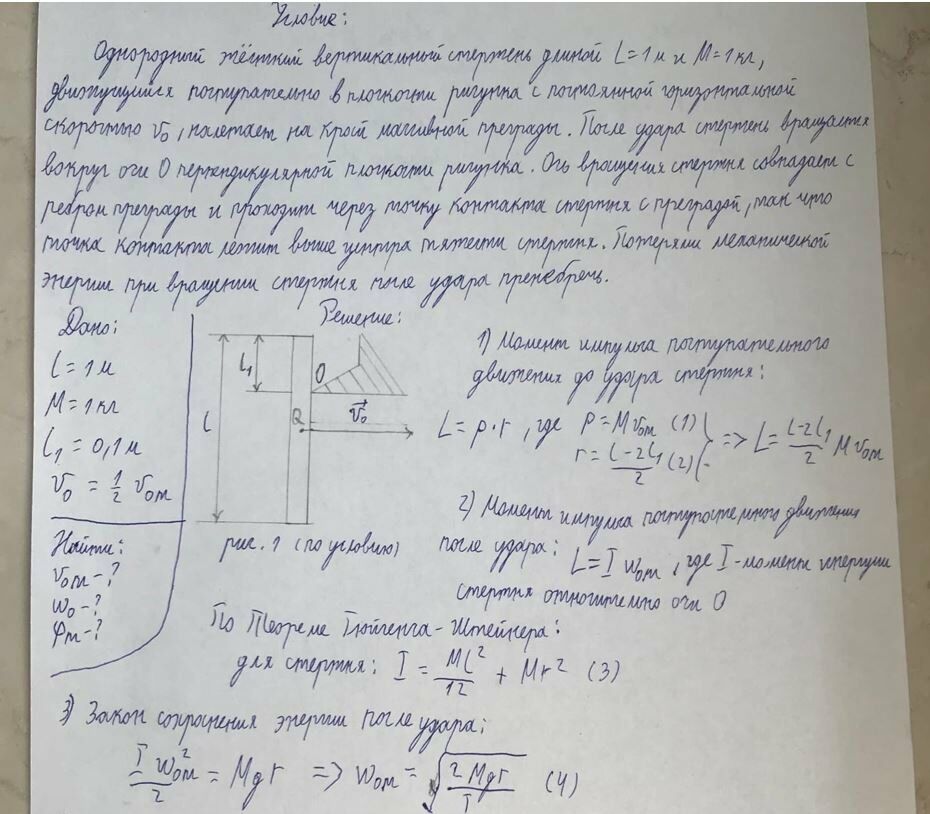 Условие:
Однородный жёсткий вертикальный стержень длиной L=1м и M=1кг,
движущийся поступательно в плоскости рисунка с постоянной горизонтальной
скоростью v₀, налетает на край массивной преграды. После удара стержень вращается
вокруг оси O перпендикулярной плоскости рисунка. Ось вращения стержня совпадает с
ребром преграды и проходит через точку контакта стержня с преградой, так что
точка контакта лежит выше центра тяжести стержня. Потерями механической
энергии при вращении стержня после удара пренебречь.
Дано:
L=1м
M=1кг
L₁=0,1м
v₀ = 1/2 v₀ₘ
Найти:
v₀ₘ-?
w₀-?
φₘ-?
Решение:
L
L₁
O
v₀
рис. 1 (по условию)
1) Момент импульса поступательного
движения до удара стержня:
L = p·r, где p = Mv₀ₘ (1)
r = (L-2L₁)/2 (2)
=> L = (L-2L₁)/2 Mv₀ₘ
2) Момент импульса поступательного движения
после удара: L = I w₀ₘ, где I-момент инерции
стержня относительно оси O
По Теореме Гюйгенса-Штейнера:
для стержня: I = ML²/12 + Mr² (3)
3) Закон сохранения энергии после удара:
I w₀ₘ²/2 = Mgr => w₀ₘ = √(2Mgr/I) (4)